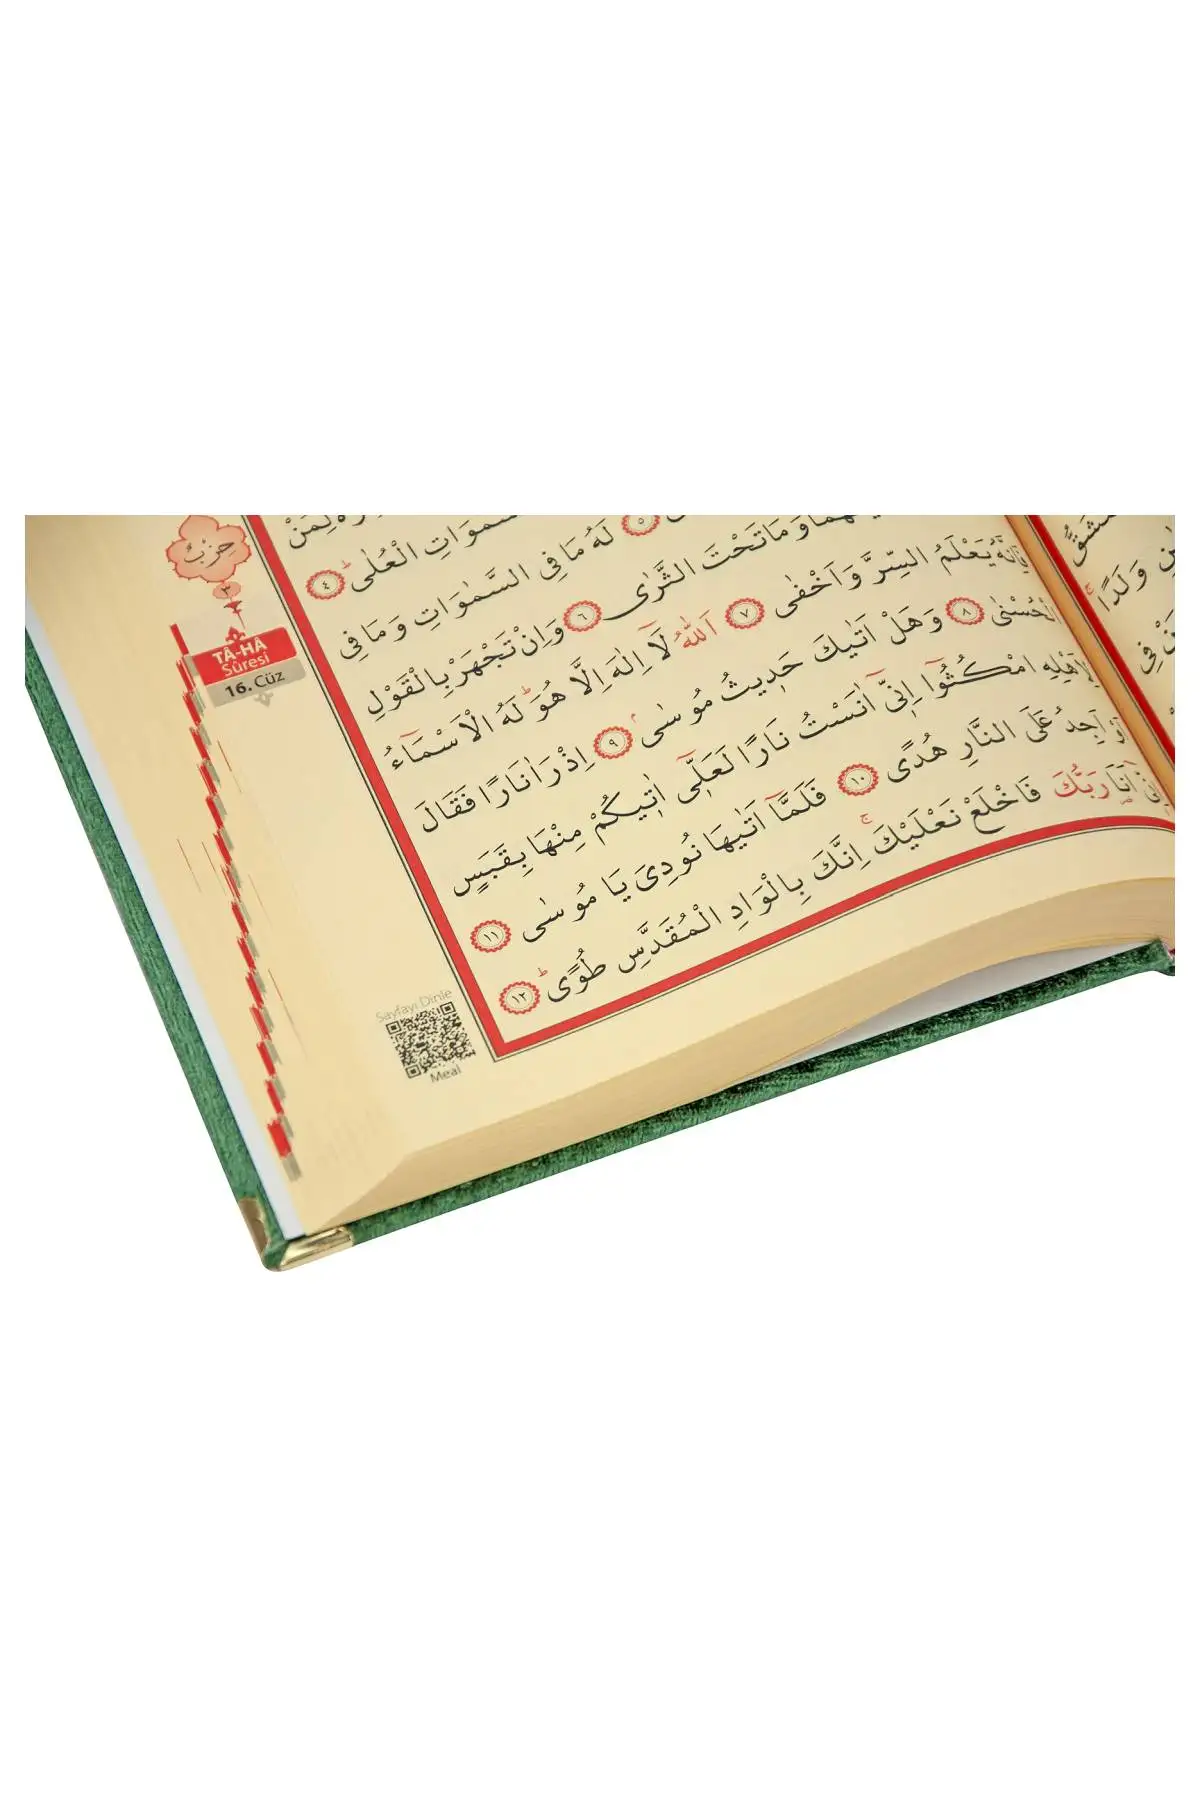 وَلَدًا
فِي
لِمَنْ
الْعُلٰىۜ ٤
٥ لَهُ مَا فِي السَّمٰوَاتِ وَمَا فِي
وَمَا تَحْتَ الثَّرٰى ٦ وَاِنْ تَجْهَرْ بِالْقَوْلِ
فَاِنَّهُ يَعْلَمُ السِّرَّ وَاَخْفٰى ٧ اَللّٰهُ لَٓا اِلٰهَ اِلَّا هُوَۜ لَهُ الْاَسْمَٓاءُ
الْحُسْنٰى ٨ وَهَلْ اَتٰيكَ حَدٖيثُ مُوسٰىۢ ٩ اِذْ رَاٰ نَارًا فَقَالَ
لِاَهْلِهِ امْكُثُٓوا اِنّٖٓي اٰنَسْتُ نَارًا لَعَلّٖٓي اٰتٖيكُمْ مِنْهَا بِقَبَسٍ
اَوْ اَجِدُ عَلَى النَّارِ هُدًى ١٠ فَلَمَّٓا اَتٰيهَا نُودِيَ يَا مُوسٰى ١١
اِنّٖٓي اَنَا۬ رَبُّكَ فَاخْلَعْ نَعْلَيْكَۚ اِنَّكَ بِالْوَادِ الْمُقَدَّسِ طُوًىۜ ١٢
حِزْبٌ
٣
TÂ-HÂ
Sûresi
16. Cüz
Sayfayı Dinle
Meal